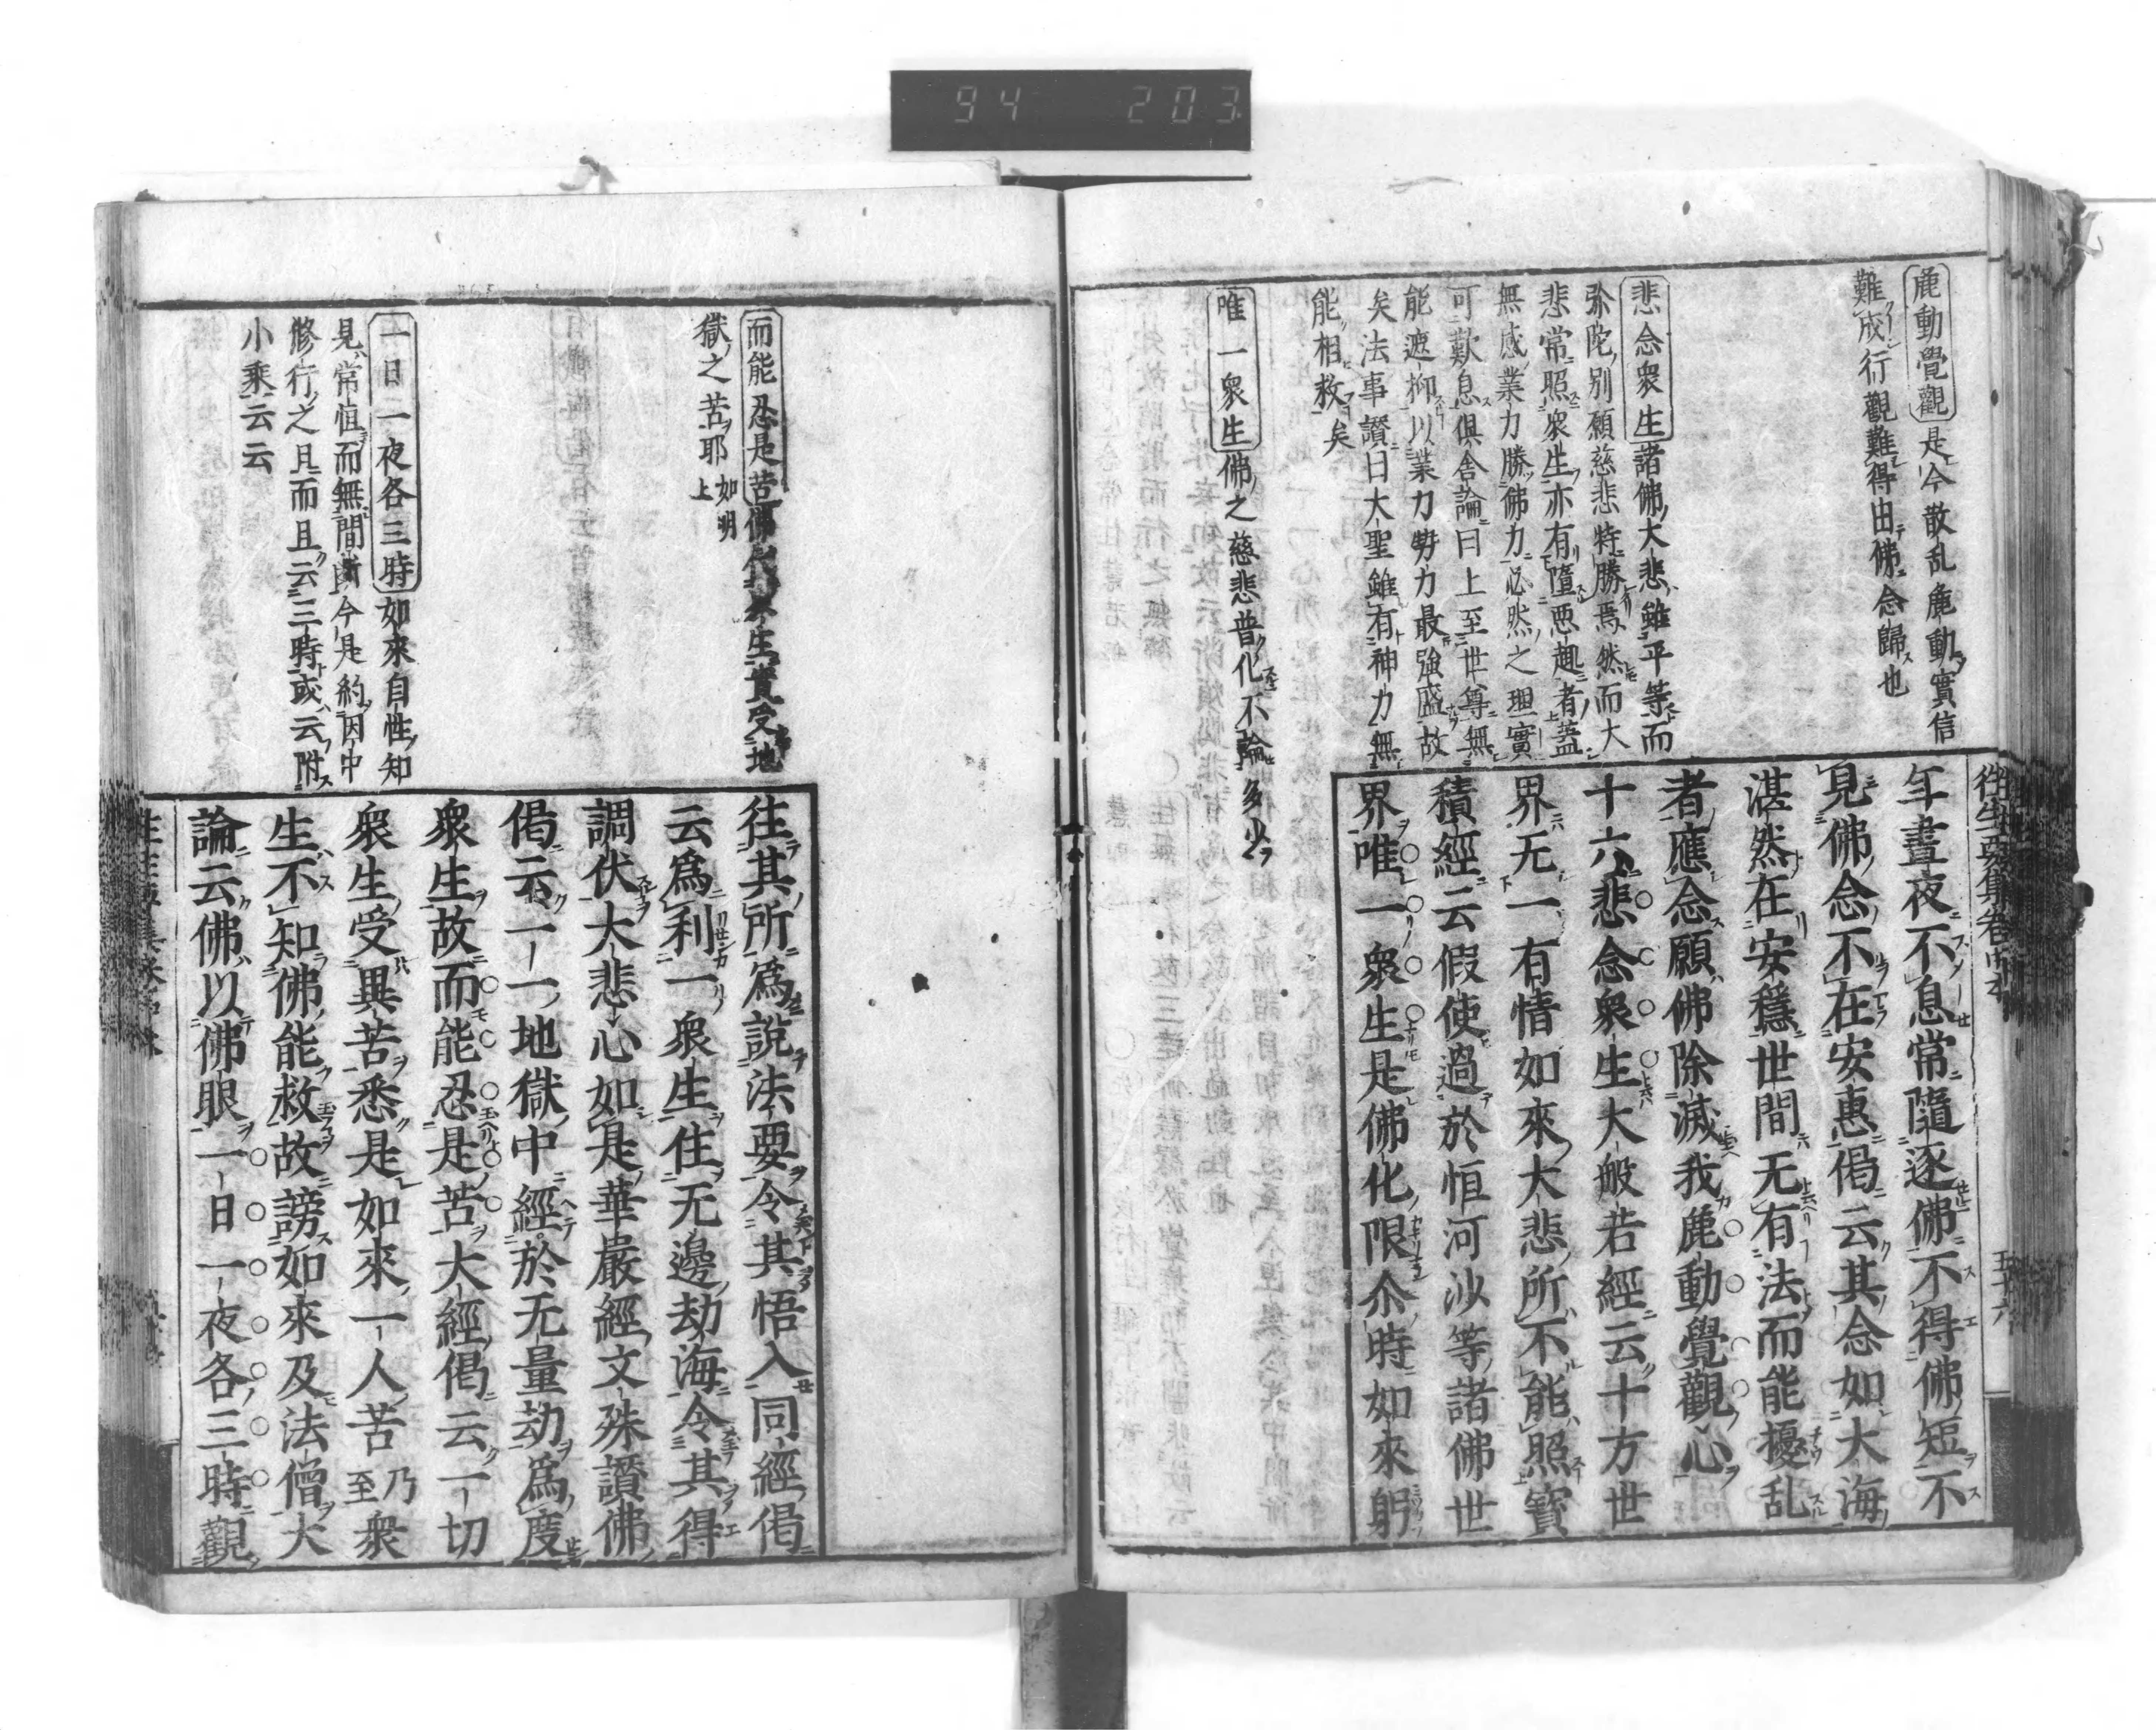 94 203
麁動覺觀是今散乱麁動實信
難成行觀難得由佛念歸也
悲念衆生諸佛大悲雖平等而
弥陀別願慈悲特勝焉然而大
悲常照衆生亦有墮悪趣者蓋
無感業力勝佛力必然之理實
可歎息倶舎論曰上至世尊無
能遮抑以業力勢力最強盛故
矣法事讃曰大聖雖有神力無
能相救矣
唯一衆生佛之慈悲普化不論多少
往生要集卷中本
五十六
年晝夜不息常隨逐佛不得佛短不
見佛念不在安惠偈云其念如大海
湛然在安穩世間无有法而能擾乱
者應念願佛除滅我麁動覺觀心
十六悲念衆生大般若經云十方世
界无一有情如來大悲所不能照寳
積經云假使過於恒河沙等諸佛世
界唯一衆生是佛化限尒時如來躬
而能忍是苦佛代衆生實受地
獄之苦耶如明上
一日一夜各三時如來自性知
見常恒而無間斷今是約因中
修行之且而且云三時或云附
小乘云云
往其所爲說法要令其悟入同經偈
云爲利一衆生住无邊劫海令其得
調伏大悲心如是華嚴經文殊讃佛
偈云一一地獄中經於无量劫爲度
衆生故而能忍是苦大經偈云一切
衆生受異苦悉是如來一人苦乃至衆
生不知佛能救故謗如來及法僧大
論云佛以佛眼一日一夜各三時觀